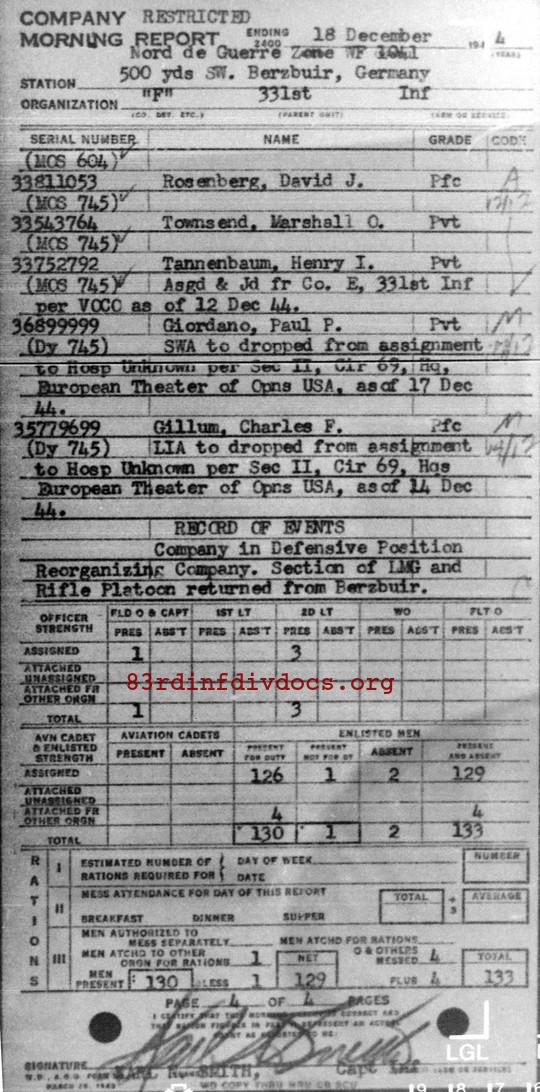 COMPANY RESTRICTED
MORNING REPORT ENDING 2400 18 December 194 4
Nord de Guerre Zone WF (YEAR)
STATION 500 yds SW. Berzbuir, Germany
ORGANIZATION "F" 331st Inf
(CO. DET. ETC.) (PARENT UNIT) (ARM OR SERVICE)
SERIAL NUMBER NAME GRADE CODE
(MOS 604)
33811053 Rosenberg, David J. Pfc A
(MOS 745) 12/12
33543764 Townsend, Marshall O. Pvt
(MOS 745)
33752792 Tannenbaum, Henry I. Pvt
(MOS 745) Asgd & Jd fr Co. E, 331st Inf
per VOCO as of 12 Dec 44.
36899999 Giordano, Paul P. Pvt M
(Dy 745) SWA to dropped from assignment
to Hosp Unknown per Sec II, Cir 69, Hq,
European Theater of Opns USA, asof 17 Dec
44.
35779699 Gillum, Charles F. Pfc M
(Dy 745) LIA to dropped from assignment
to Hosp Unknown per Sec II, Cir 69, Hqs
European Theater of Opns USA, asof 14 Dec
44.
RECORD OF EVENTS
Company in Defensive Position
Reorganizing Company. Section of LMG and
Rifle Platoon returned from Berzbuir.
OFFICER STRENGTH FLD O & CAPT 1ST LT 2D LT WO FLT O
PRES ABS'T PRES ABS'T PRES ABS'T PRES ABS'T PRES ABS'T
ASSIGNED 1 3
ATTACHED UNASSIGNED
83rdinfdivdocs.org
ATTACHED FR OTHER ORGN
TOTAL 1 3
AVN CADET & ENLISTED STRENGTH AVIATION CADETS ENLISTED MEN
PRESENT ABSENT PRESENT FOR DUTY PRESENT NOT FOR DY ABSENT PRESENT AND ABSENT
ASSIGNED 126 1 2 129
ATTACHED UNASSIGNED
ATTACHED FR OTHER ORGN 4 4
TOTAL 130 1 2 133
RATIONS
I ESTIMATED NUMBER OF RATIONS REQUIRED FOR { DAY OF WEEK DATE NUMBER
II MESS ATTENDANCE FOR DAY OF THIS REPORT TOTAL ÷ 3 AVERAGE
BREAKFAST DINNER SUPPER
III MEN AUTHORIZED TO MESS SEPARATELY MEN ATCHD FOR RATIONS
MEN ATCHD TO OTHER ORGN FOR RATIONS 1 NET O & OTHERS MESSED 4 TOTAL
MEN PRESENT 130 LESS 1 129 PLUS 4 133
PAGE 4 OF 4 PAGES
I CERTIFY THAT THIS MORNING REPORT IS CORRECT AND
SIGNATURE SMITH, Capt
LGL
19 18 17